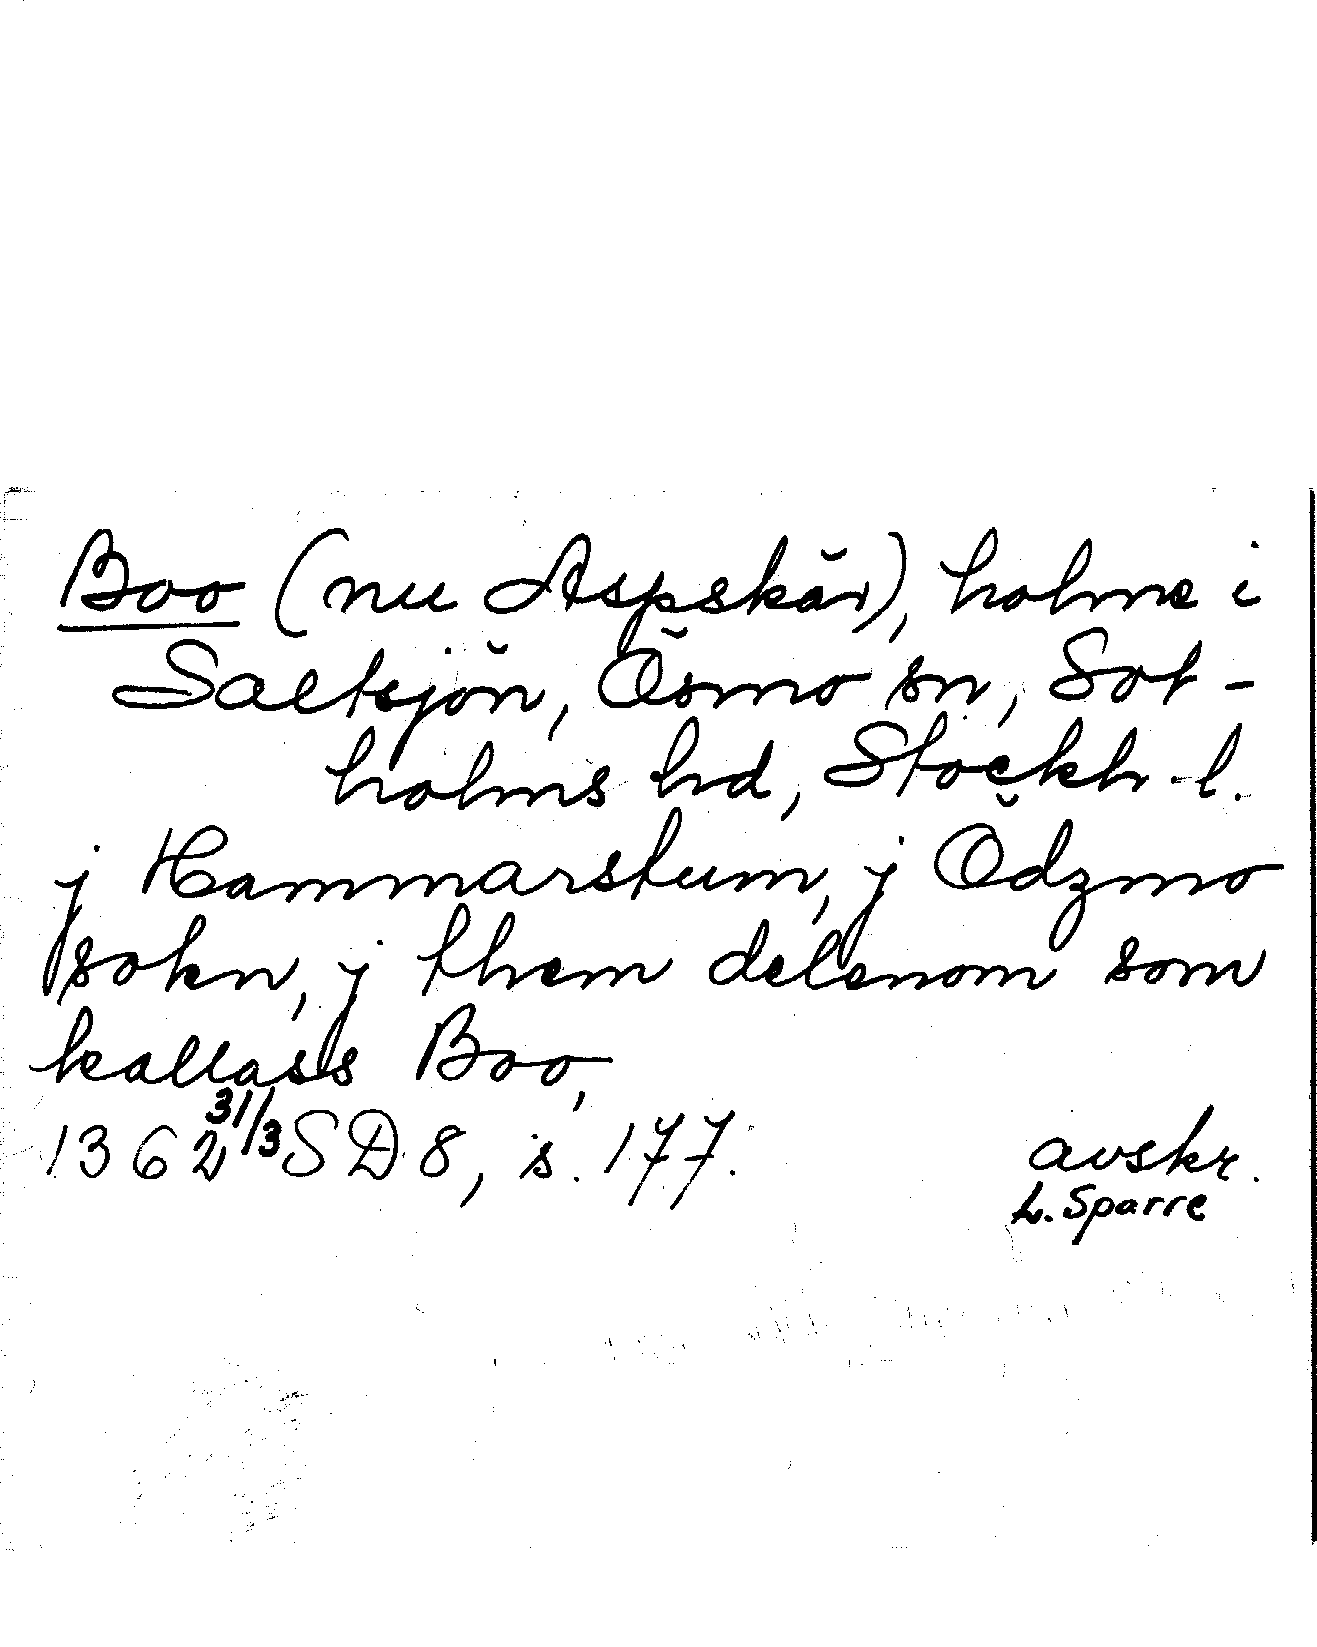 Boo (nu Aspskär), holme i
Saltsjön, Ösmo sn, Sot-
holms hd, Stockh. l.
j Hammarstum, j Ödzmo
sokn, j them delenom som
kallass Boo,
1362 31/3 SD 8, s. 177.
avskr.
L. Sparre